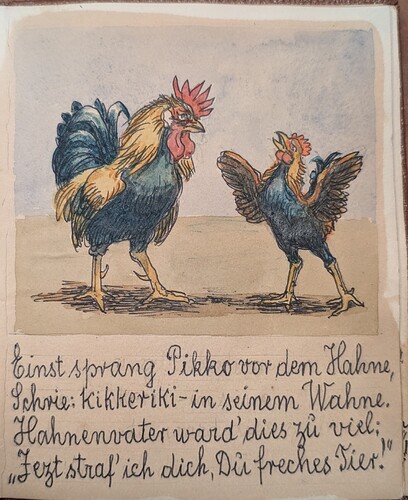 Einst sprang Pikko vor dem Hahne,
Schrie: kikkeriki - in seinem Wahne.
Hahnenvater ward' dies zŭ viel;
„Jezt straf' ich dich, Dŭ freches Tier!"